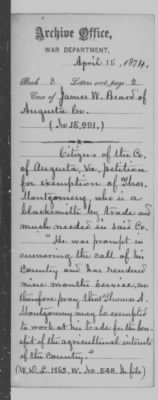 Archive Office,
WAR DEPARTMENT,
April 15, 1874.
Book 3 Letters sent, page 2
Case of James W. Beard of
Augusta Co.
(No. 15,991.)
Citizens of the Co.
of Augusta, Va. petition
for exemption of Thos.
Montgomery, who is a
blacksmith by trade and
much needed in said Co.
"He was prompt in
answering the call of his
Country and has rendered
nine months service, we
therefore pray that Thomas A.
Montgomery may be exempted
to work at his trade for the ben-
efit of the agricultural interests
of the Country."
(W.D. 1862. W. No. 548. In file)